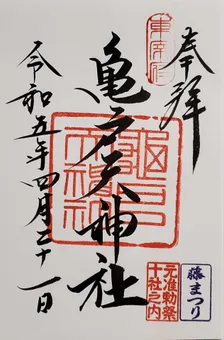 奉拝
亀戸天神社
令和五年四月二十一日
元准勅祭
十社之内
藤まつり